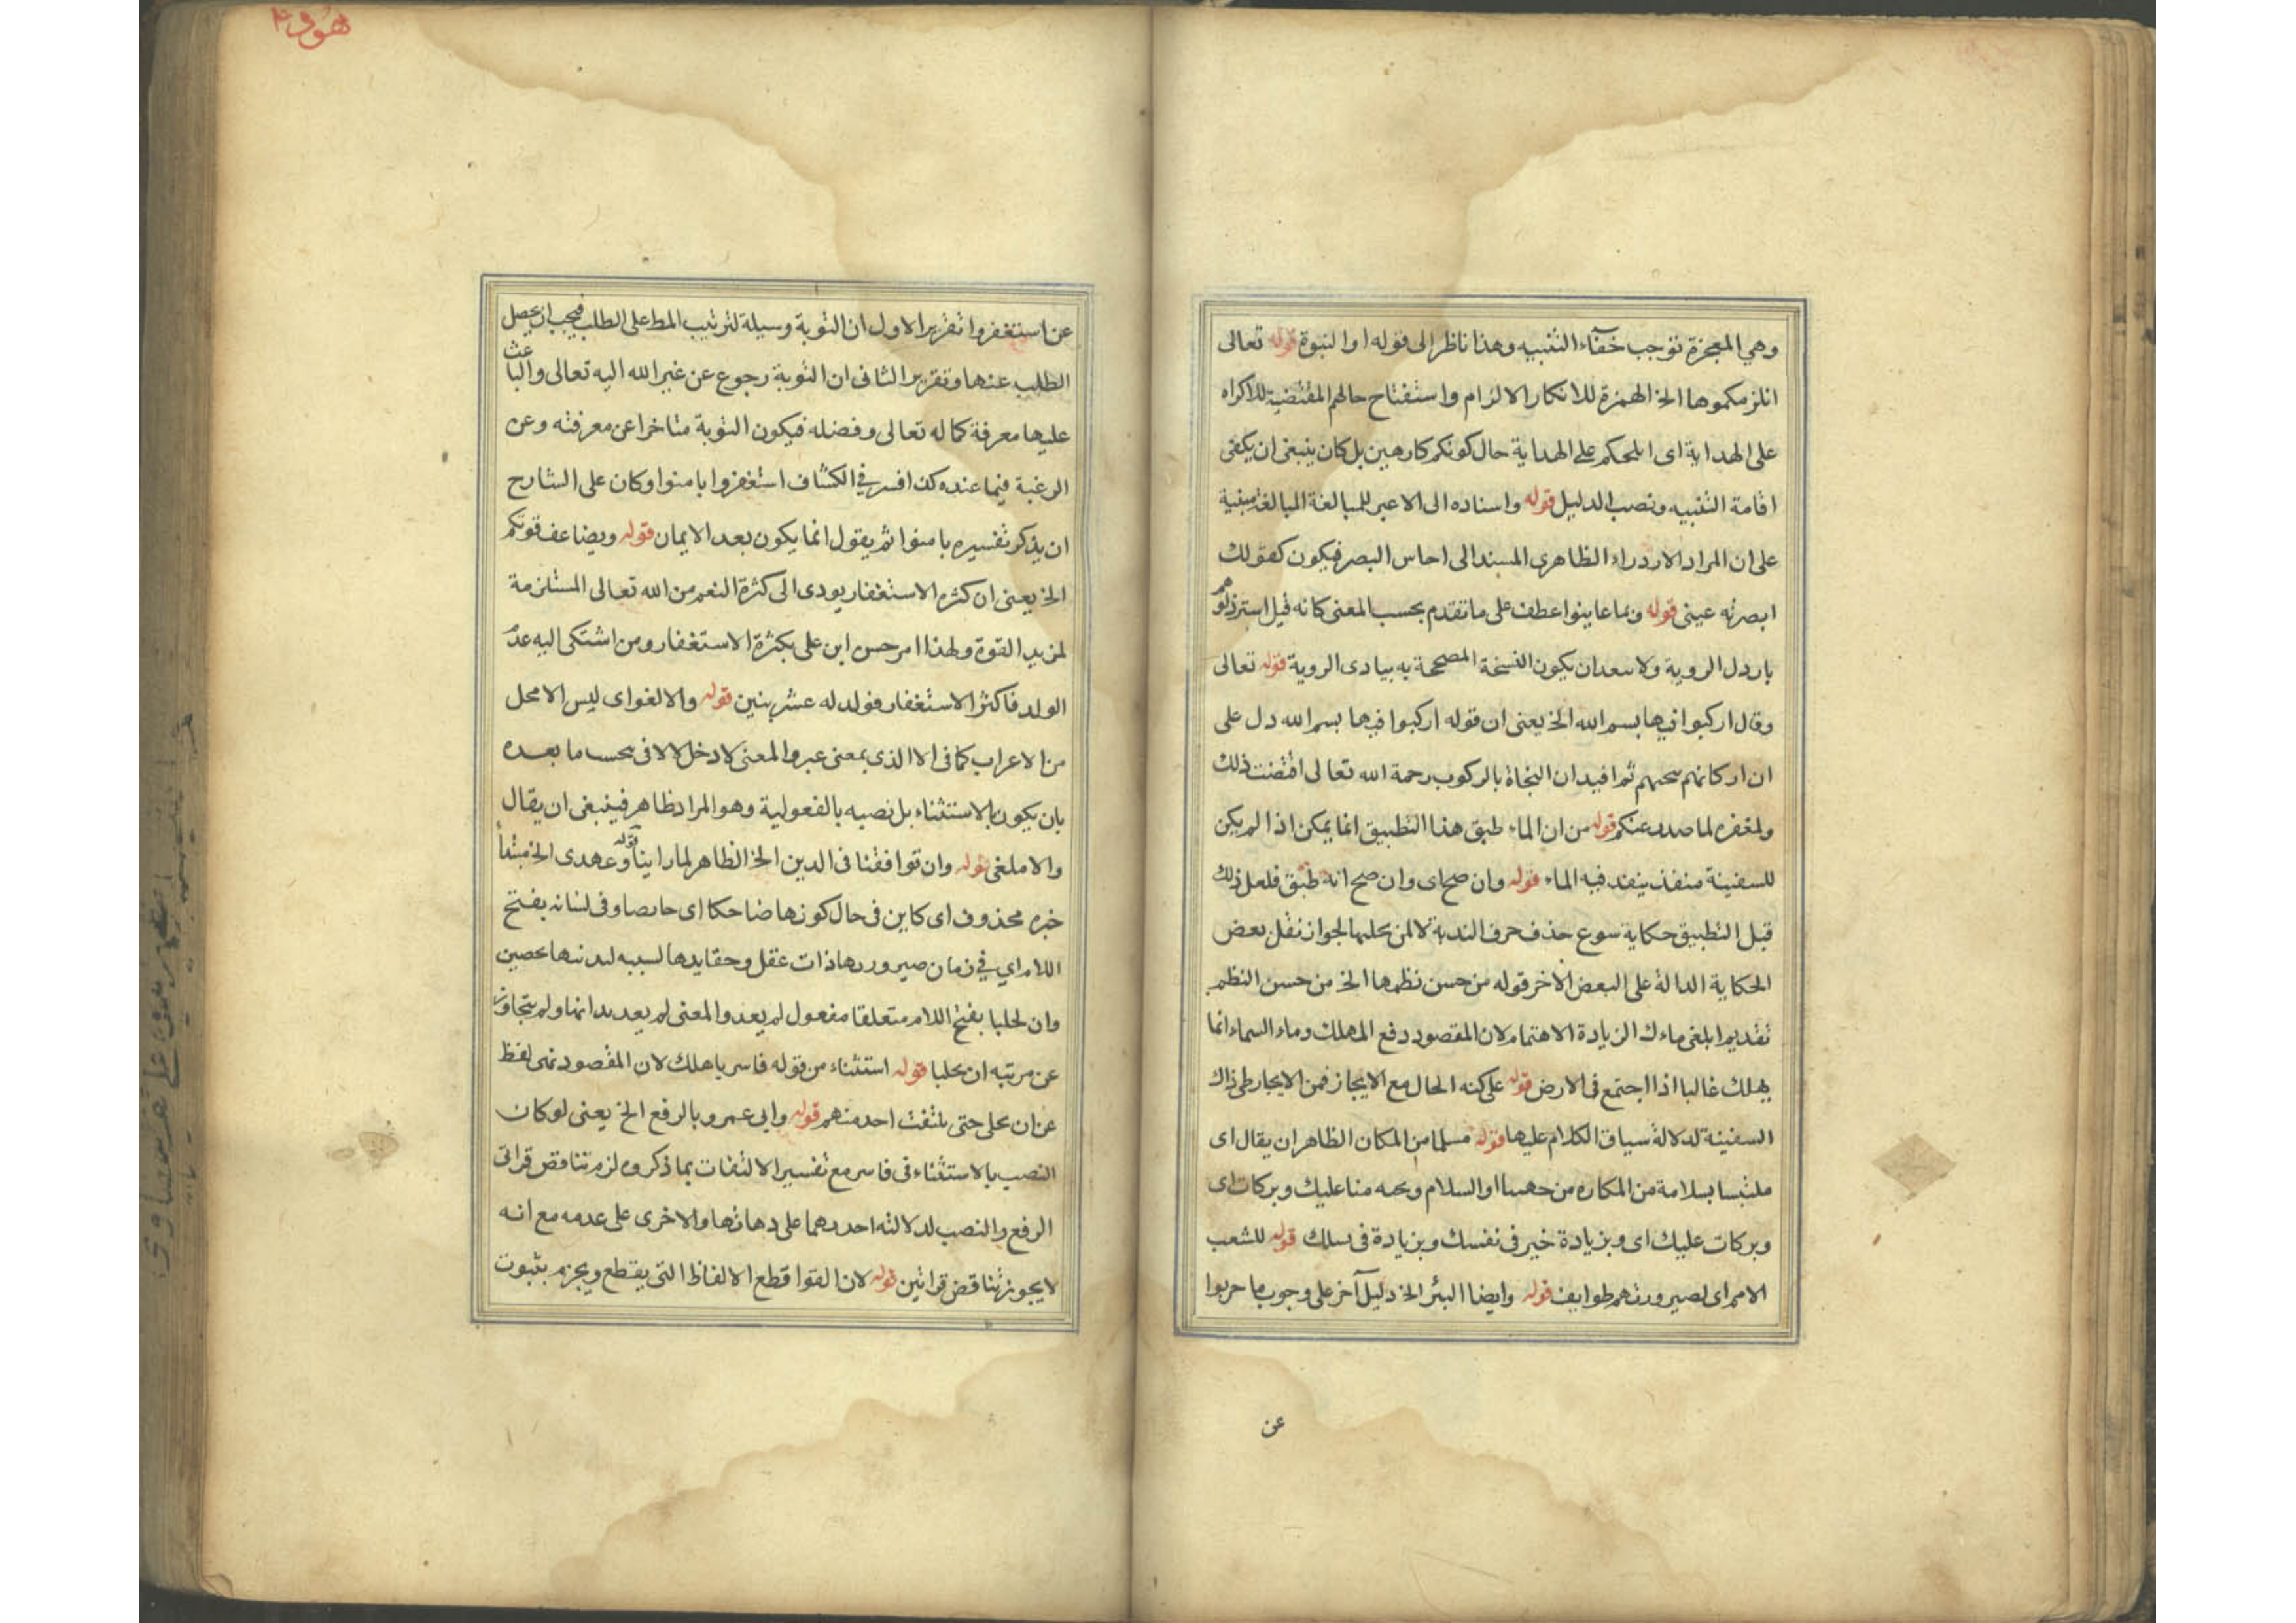 وهي المعجزة توجب خفاء التنبيه وهذا ناظر الى قوله او النبوة قوله تعالى
انلزمكموها الخ الهمزة للانكار الالزام واستفتاح حالهم المقتضية للاكراه
على الهداية اى ابلحكم على الهداية حال كونكم كارهين بل كان ينبغى ان يكفى
اقامة التنبيه ونصب الدليل قوله واسناده الى الاعين للمبالغة المبالغة مبنية
على ان المراد الازدراء الظاهرى المسند الى احاس البصر فيكون كقولك
ابصرته عينى قوله وبما عاينوا عطف على ما تقدم بحسب المعنى كانه قيل استرذلوهم
باردل الروية ولا سعدان يكون النسخة المصححة به ببادى الروية قوله تعالى
وقال اركبوا فيها بسم الله الخ يعنى ان قوله اركبوا فيها بسم الله دل على
ان اركانهم ثم افيد ان النجاة بالركوب رحمة الله تعالى اقتضت ذلك
ولمغفره لما صدر عنكم قوله من ان الماء طبق هذا التطبيق انما يمكن اذا لم يكن
للسفينة منفذ ينفد فيه الماء قوله وان صح اى وان صح انه طبق فلعل ذلك
قبل التطبيق حكاية سوع حذف حرف الندبة لجواز نقل بعض
الحكاية الدالة على البعض الاخر قوله من حسن نظمها الخ من حسن النظم
تقديم ابلغى ماءك لزيادة الاهتمام لان المقصود دفع المهلك وماء السماء انما
يهلك غالبا اذا اجتمع فى الارض قوله على كنه الحال مع الايجاز فمن الايجاز طى ذاك
السفينة لدلالة سياق الكلام عليها قوله مسلما من المكان الظاهر ان يقال اى
ملتبسا بسلامة من المكاره من جهتنا او السلام وتحيه منا عليك وبركات اى
وبركات عليك اى وبزيادة خير فى نفسك وبزيادة فى نسلك قوله للشعب
الامم اى لصيرورتهم طوايف قوله وايضا البئر الخ دليل آخر على وجوب ما حربوا
عن
هود ۴
عن استغفروا تقرير الاول ان التوبة وسيلة لترتيب المط على الطلب فيجب ان يحصل
الطلب عنها وتقرير الثانى ان التوبة رجوع عن غير الله اليه تعالى والباعث
عليها معرفة كماله تعالى وفضله فيكون التوبة متاخرا عن معرفته وعن
الرغبة فيما عنده كذا فسر في الكشاف استغفروا بامنوا وكان على الشارح
ان يذكر تفسيره بامنوا ثم يقول انما يكون بعد الايمان قوله ويضاعف قوتكم
الخ يعنى ان كثره الاستغفار يودى الى كثرة النعم من الله تعالى المستلزمة
لمزيد القوة ولهذا امر حسن ابن على بكثرة الاستغفار ومن اشتكى اليه عدم
الولد فاكثر الاستغفار فولد له عشر بنين قوله والا لغو اى ليس الا محل
من الاعراب كما فى الا الذى بمعنى غير والمعنى لا دخل لالا فى بحسب ما بعده
بان يكون بالاستثناء بل نصبه بالفعولية وهو المراد ظاهر فينبغى ان يقال
والا ملغى قوله وان توافقنا فى الدين الخ الظاهر لما راينا قوله وعهدى الخ مبتدأ
خبره محذوف اى كاين فى حال كونها ضاحكا اى حايضا وفى لنانه بفتح
اللام اي في زمان صيرورتها ذات عقل وحقايدها لسببه لبدنها بحصين
وان لحلبا بفتح اللام متعلقا مفعول لم يعد والمعنى لم يعد بدانها ولم يتجاوز
عن مرتبه ان تحلبا قوله استثناء من قوله فاسر باهلك لان المقصود نهى لفظ
عن ان يخلى حتى يلتفت احد منهم قوله وابى عمرو بالرفع الخ يعنى لو كان
النصب بالاستثناء فى فاسر مع تفسير الالتفات بما ذكروه لزم تناقض قراتى
الرفع والنصب لدلالته احدهما على دهابها والاخرى على عدمه مع انه
لا يجوز تناقض قراتين قوله لان القوا قطع الالفاظ التى يقطع ويجزم بثبوت